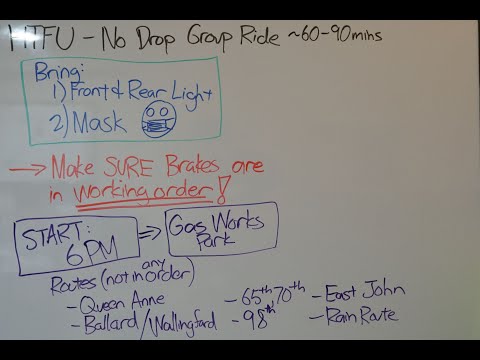 HTFU - No Drop Group Ride ~60-90mins
Bring:
1) Front & Rear Light
2) Mask
→ Make SURE Brakes are
in working order!
START:
6 PM
⇒ Gas Works
Park
Routes (not in any order)
- Queen Anne
- Ballard/Wallingford
- 65th, 70th
- 98th
- East John
- Rain Route